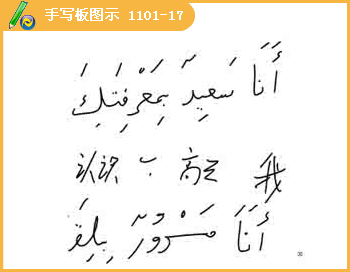 手写板图示 1101-17
أَنَا سَعِيدٌ بِمَعْرِفَتِكَ
认识 高兴 我
أَنَا مَسْرُورٌ بِلِقَ